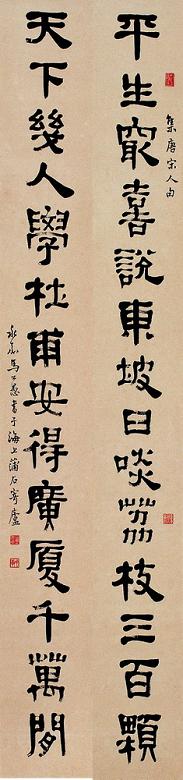 集唐宋人句
平生冣喜說東坡日啖荔枝三百顆
天下幾人學杜甫安得廣廈千萬間
永嘉馬公愚書于海上蒲石寄廬